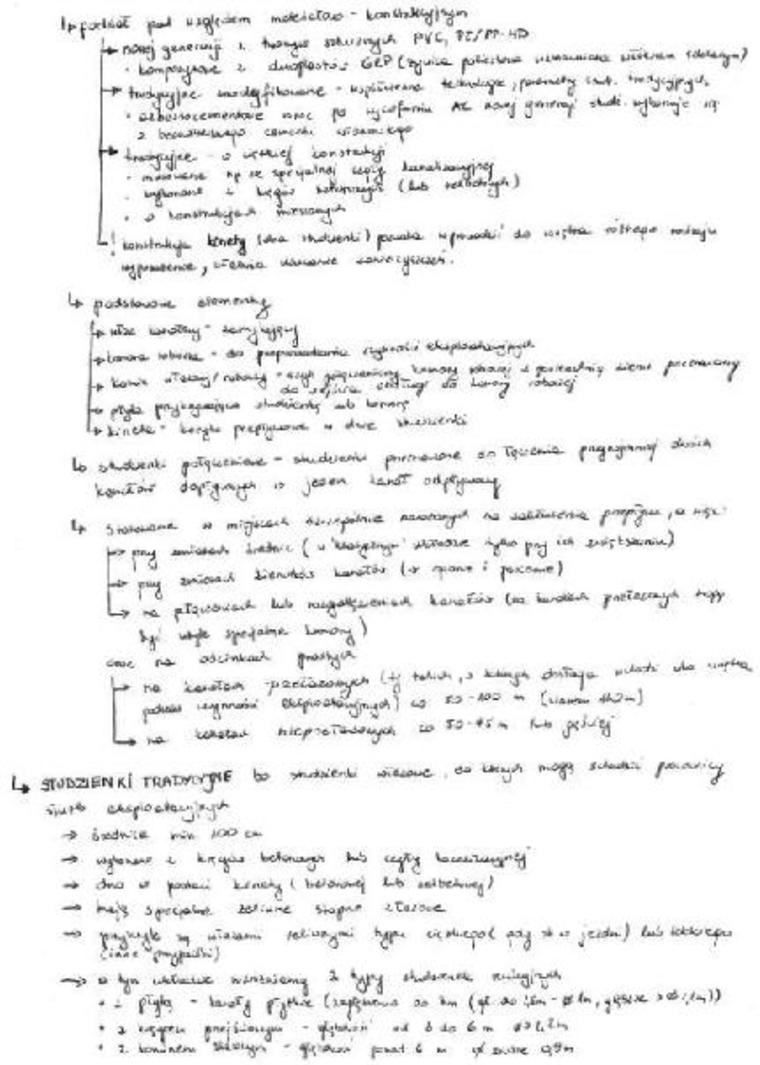 ↳ podział pod względem materiałowo - konstrukcyjnym
→ nowej generacji z tworzyw sztucznych PVC, PE/PP-HD
• kompozytowe z duroplastów GRP (żywica poliestrowa wzmacniana włóknem szklanym)
→ tradycyjne zmodyfikowane - współczesne technologie, parametry stud. tradycyjnych,
• azbestocementowe oraz po wycofaniu AC nowej generacji stud. wykonuje się
z cementu
→ tradycyjne - o ciężkiej konstrukcji
• murowane np ze specjalnej cegły kanalizacyjnej
• wykonane z kręgów betonowych (lub żelbetowych)
• o konstrukcjach mieszanych
! konstrukcja kinety (dna studzienki) pozwala wprowadzić do wnętrza różnego rodzaju
wyposażenie, ułatwia usuwanie zanieczyszczeń.
↳ podstawowe elementy
→ właz kanałowy - zamykający
→ komora robocza - do przeprowadzania czynności eksploatacyjnych
→ komin włazowy/roboczy - szyb połączeniowy komory roboczej z powierzchnią ziemi przeznaczony
do zejścia obsługi do komory roboczej
→ płyta przykrywająca studzienkę lub komorę
→ kineta - koryto przepływowe w dnie studzienki
↳ studzienki połączeniowe - studzienki przeznaczone do łączenia przynajmniej dwóch
kanałów dopływowych w jeden kanał odpływowy
↳ stosowane w miejscach szczególnie narażonych na zakłócenia przepływu, a więc:
→ przy zmianach średnic (w 'klasycznym' układzie tylko przy ich zwiększeniu)
→ przy zmianach kierunków kanałów (w pionie i poziomie)
→ na połączeniach lub rozgałęzieniach kanałów (na kanałach przełazowych mogą
być użyte specjalne komory)
oraz na odcinkach prostych
→ na kanałach przełazowych (tj takich, do których obsługa wchodzi do wnętrza
podczas czynności eksploatacyjnych) co 50-100 m
→ na kanałach nieprzełazowych co 50-75 m lub gęściej
↳ STUDZIENKI TRADYCYJNE to studzienki włazowe, do których mogą schodzić pracownicy
służb eksploatacyjnych
→ średnica min 100 cm
→ wykonane z kręgów betonowych lub cegły kanalizacyjnej
→ dno w postaci kinety (betonowej lub żelbetowej)
→ mają specjalne żeliwne stopnie złazowe
→ przykryte są włazami żeliwnymi typu ciężkiego (gdy są w jezdni) lub lekkiego
(inne przypadki)
→ w tym układzie wyróżniamy 3 typy studzienek rewizyjnych
• z płytą - kanały płytkie
• z kręgiem przejściowym - głębokość od 3 do 6 m ø 1,2m
• z kominem złazowym - głębokość ponad 6 m ø 0,9m